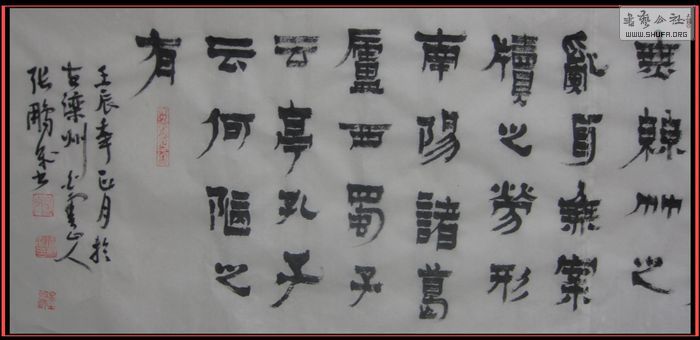 書藝公社
WWW.SHUFA.ORG
無絲竹之
亂耳無案
牘之勞形
南陽諸葛
廬西蜀子
云亭孔子
云何陋之
有
壬辰年正月於
古灤州山人
张鹏书